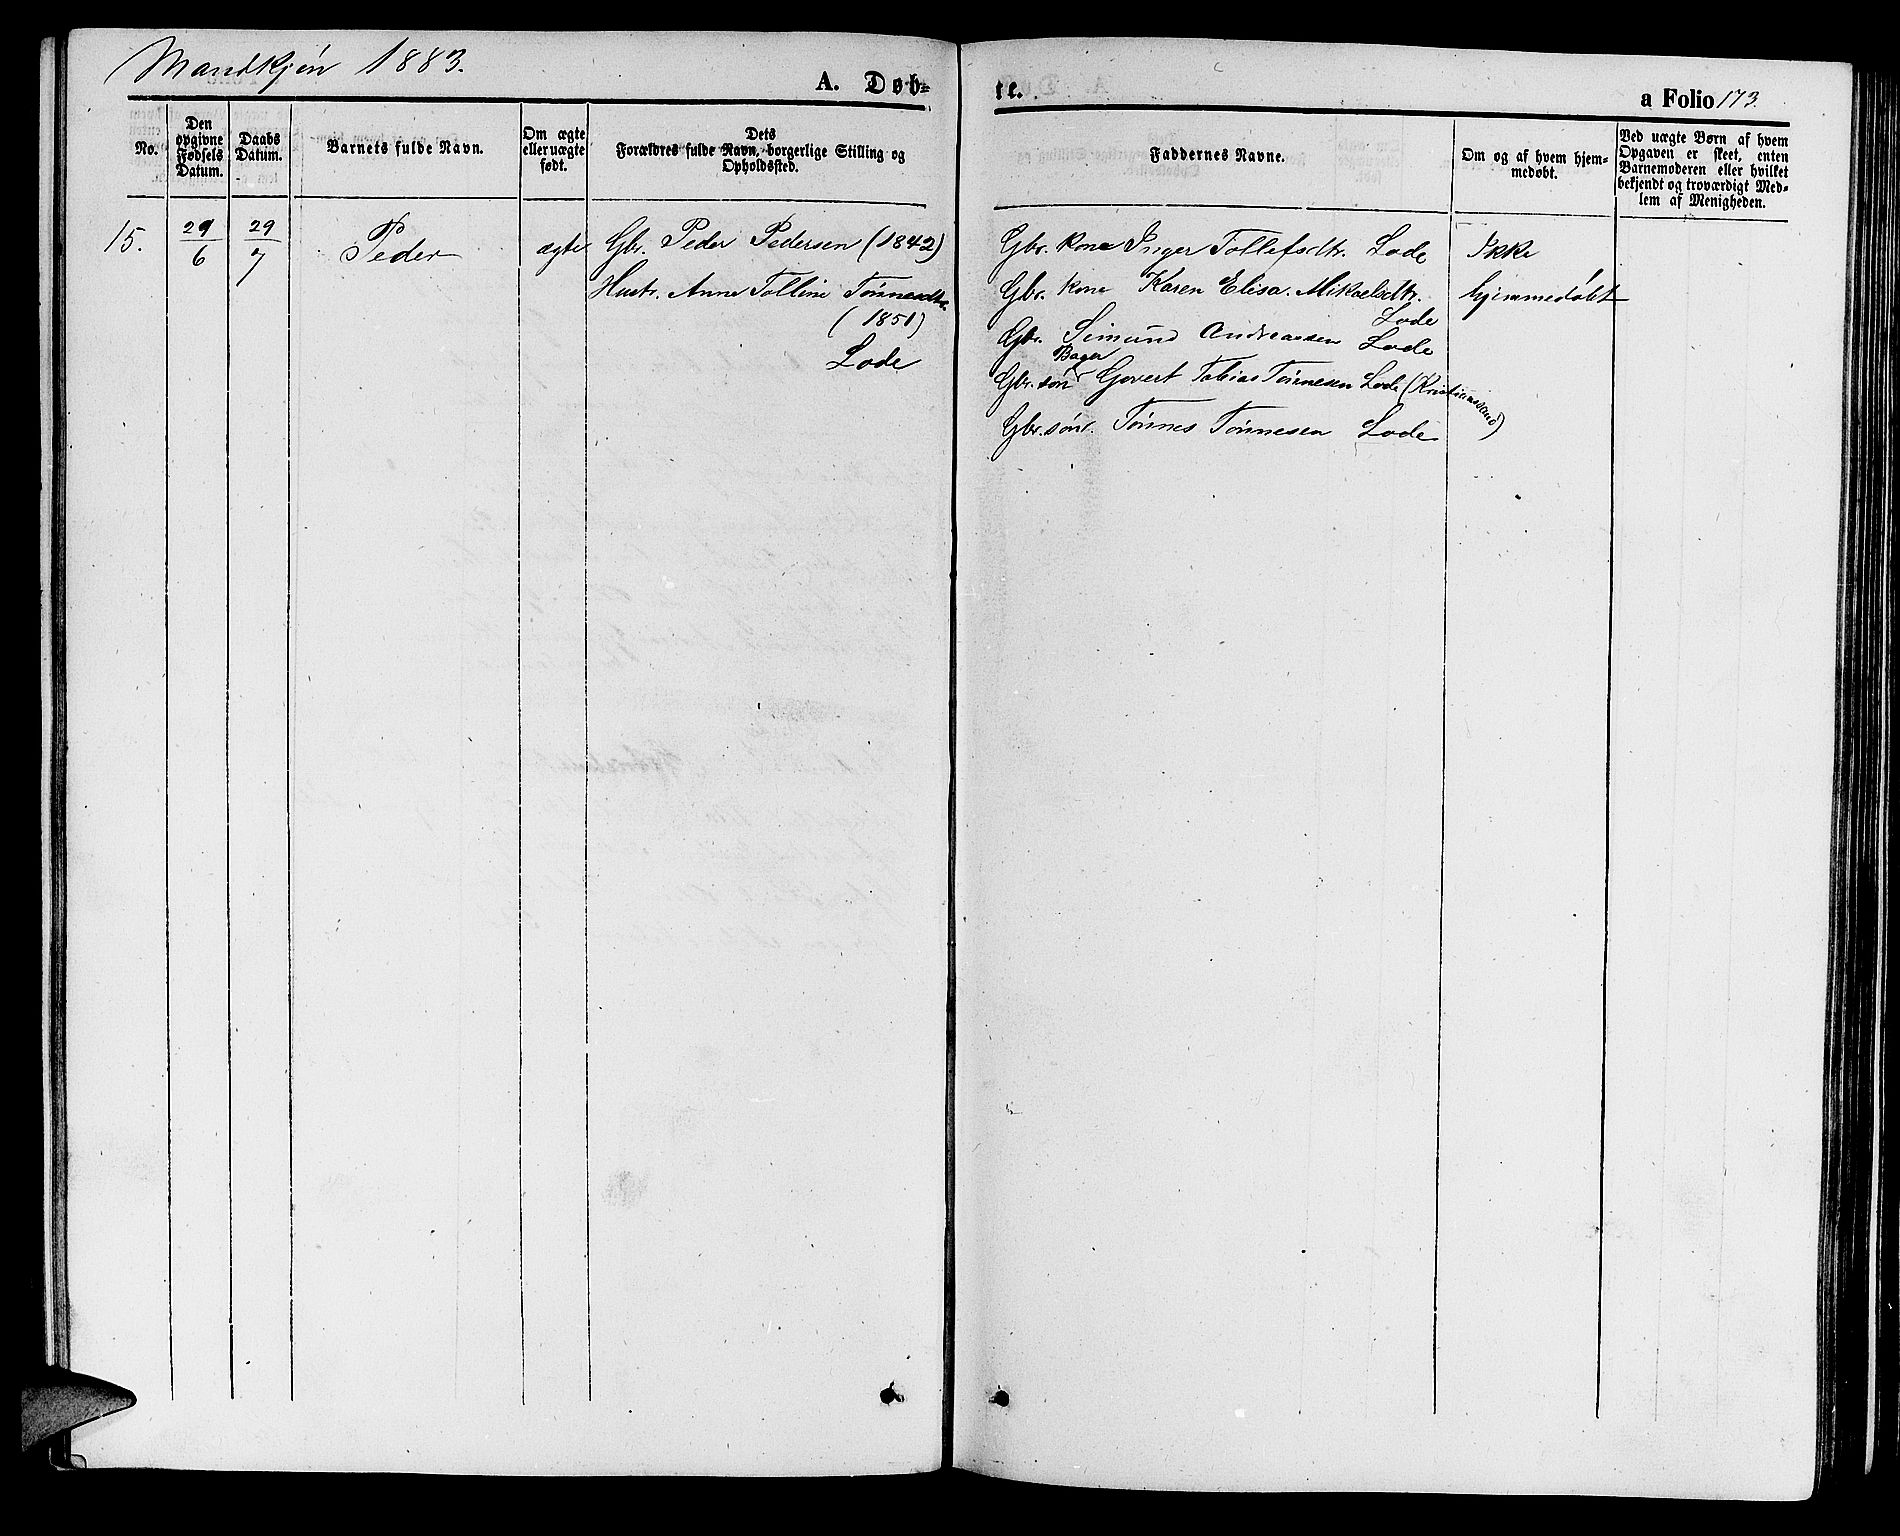 Mandkjön 1883.
A. Døb=
te.
a Folio 173
No.
Den
opgivne
Fødsels
Datum.
Daabs
Datum.
Barnets fulde Navn.
Om ægte
eller uægte
født.
Dets
Forældres fulde Navn, borgerlige Stilling og
Opholdssted.
Faddernes Navne.
Om og af hvem hjem-
medøbt.
Ved uægte Børn af hvem
Opgaven er skeet, enten
Barnemoderen eller hvilket
bekjendt og troværdigt Med-
lem af Menigheden.
15.
29/6
29/7
Peder
ægte
Gbr. Peder Pedersen (1842)
Hustr. Anne Tolline Tønnesdtr.
(1851)
Lode
Gbr. Kone Inger Tollefsdtr. Lode
Gbr. Kone Karen Elisa. Mikaelsdtr.
Lode
Gbr. Simund Andreassen Lode
Bager
Gbr. søn Govert Tobias Tønnesen Lode (Kristianssand)
Gbr. søn. Tønnes Tønnesen Lode
Ikke
hjemmedøbt